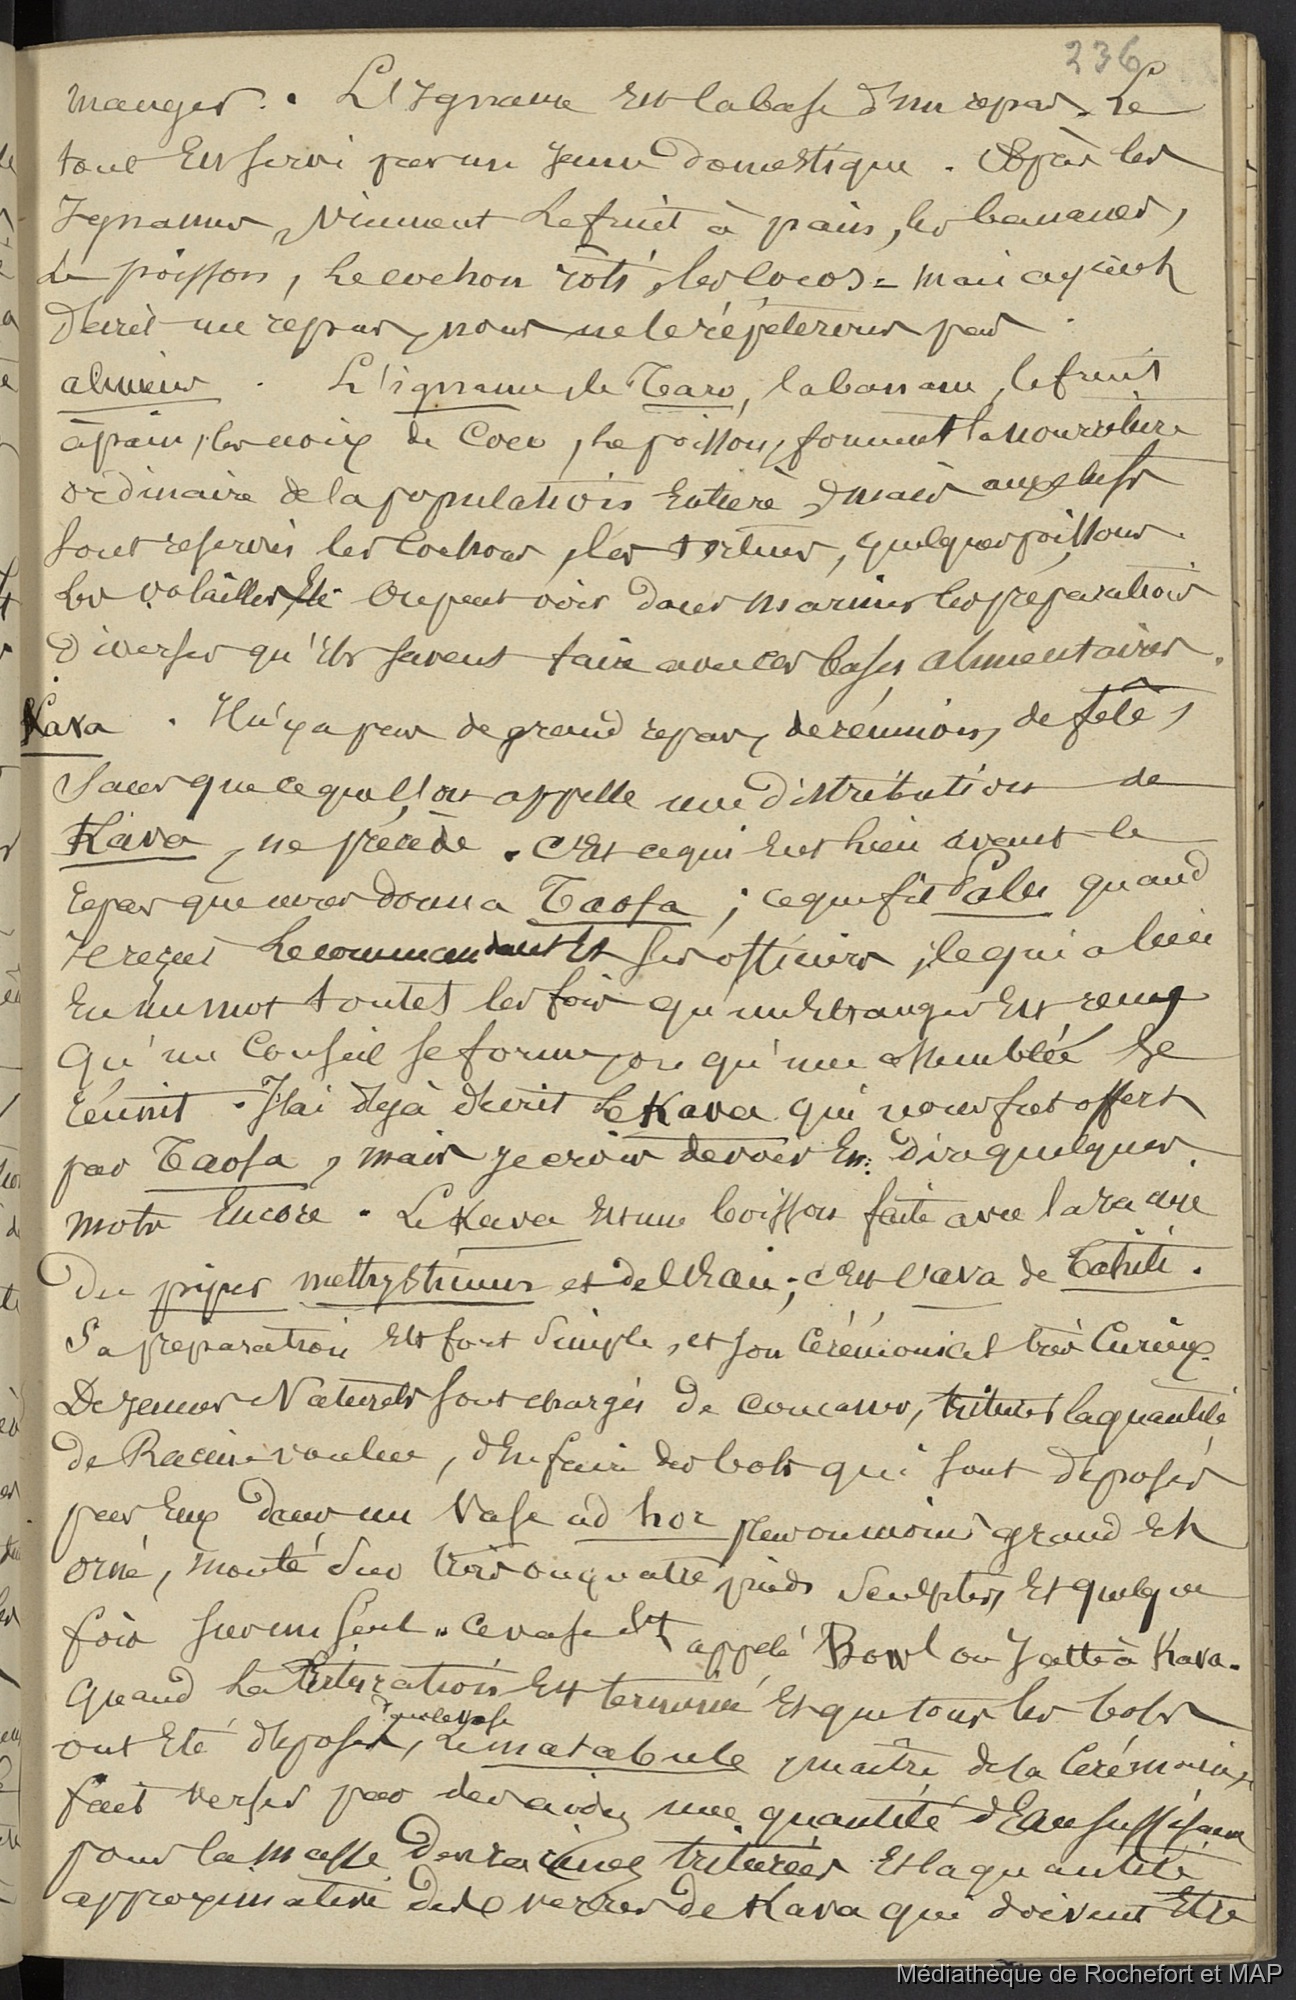 236
manger. L'Igname est la base d'un repas. Le
tout est servi par un jeune domestique. Après les
Ignames, viennent le fruit à pain, les bananes,
le poisson, le cochon roti, les cocos = mais ayant
décrit un repas, nous ne le répéterons pas.
alimens. L'igname, le Taro, la banane, le fruit
à pain, les noix de Coco, le poisson, forment la nourriture
ordinaire de la population entière, mais aux chefs
sont reservés les Cochons, les tortues, quelques poissons.
Les volailles, etc. On peut voir dans Mariner les préparations
diverses qu'ils savent faire avec ces bases alimentaires.
Kava. Il n'y a pas de grand repas, de réunion, de fête,
sans que ce que l'on appelle une distribution de
Kava, ne précède. C'est ce qui eut lieu avant le
repas que nous donna Taofa; ce que fit Palu quand
il reçut le commandant et ses officiers; ce qui a lieu
en un mot toutes les fois qu'un étranger est reçu
qu'un Conseil se forme, ou qu'une assemblée se
réunit. J'ai déjà décrit le Kava qui nous fut offert
par Taofa, mais je crois devoir en dire quelques
mots encore. Le Kava est une boisson faite avec la racine
du piper methysticum et de l'eau; c'est l'ava de Tahiti.
Sa préparation est fort simple, et son cérémonial très curieux.
De jeunes Naturels sont chargés de concasser, triturer la quantité
de Racine voulue, d'en faire des bols qui sont déposés
par eux dans un vase ad hoc plus ou moins grand et
orné, monté sur trois ou quatre pieds sculptés, et quelque
fois sur un seul. Ce vase est appelé Bowl ou Jatte à Kava.
Quand la trituration est terminée et que tous les bols
ont été déposés dans le vase, le matabule, maître de la Cérémonie,
fait verser par des aides une quantité d'Eau suffisante
pour la masse des racines triturées et la quantité
approximative de verres de Kava qui doivent être
Médiathèque de Rochefort et MAP